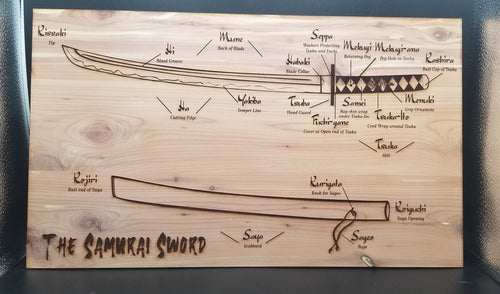 Kissaki
Tip
Hi
Blood Groove
Mune
Back of Blade
Seppa
Washers Protecting
Tsuba and Fuchi
Mekugi
Retaining Peg
Mekugi-ana
Peg Hole in Tsuka
Kashira
Butt Cap of Tsuka
Habaki
Blade Collar
Ha
Cutting Edge
Yakiba
Temper Line
Tsuba
Hand Guard
Fuchi-gane
Cover at Open end of Tsuka
Samei
Ray skin wrap
under Tsuka-Ito
Tsuka-Ito
Cord Wrap around Tsuka
Menuki
Grip Ornament
Tsuka
Hilt
Kojiri
Butt end of Saya
Kurigata
Knob for Sageo
Koiguchi
Saya Opening
The Samurai Sword
Saya
Scabbard
Sageo
Rope